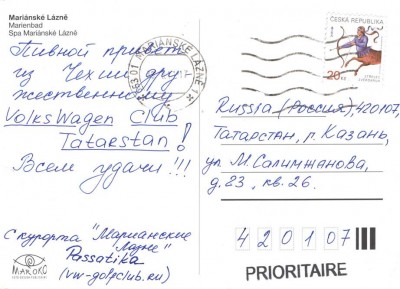 Mariánské Lázně
Marienbad
Spa Mariánské Lázně
Пивной привет
из Чехии дру
жественному
VolksWagen Club
Tatarstan!
Всем удачи!!!
с курорта "Марианские
Лазне"
Passatika
(vw-golfclub.ru)
MARCO
353 01 MARIÁNSKÉ LÁZNĚ 1
ČESKÁ REPUBLIKA
20 Kč
Russia (Россия), 420107,
Татарстан, г. Казань,
ул. М. Салимжанова,
д. 23, кв. 26.
420107
PRIORITAIRE